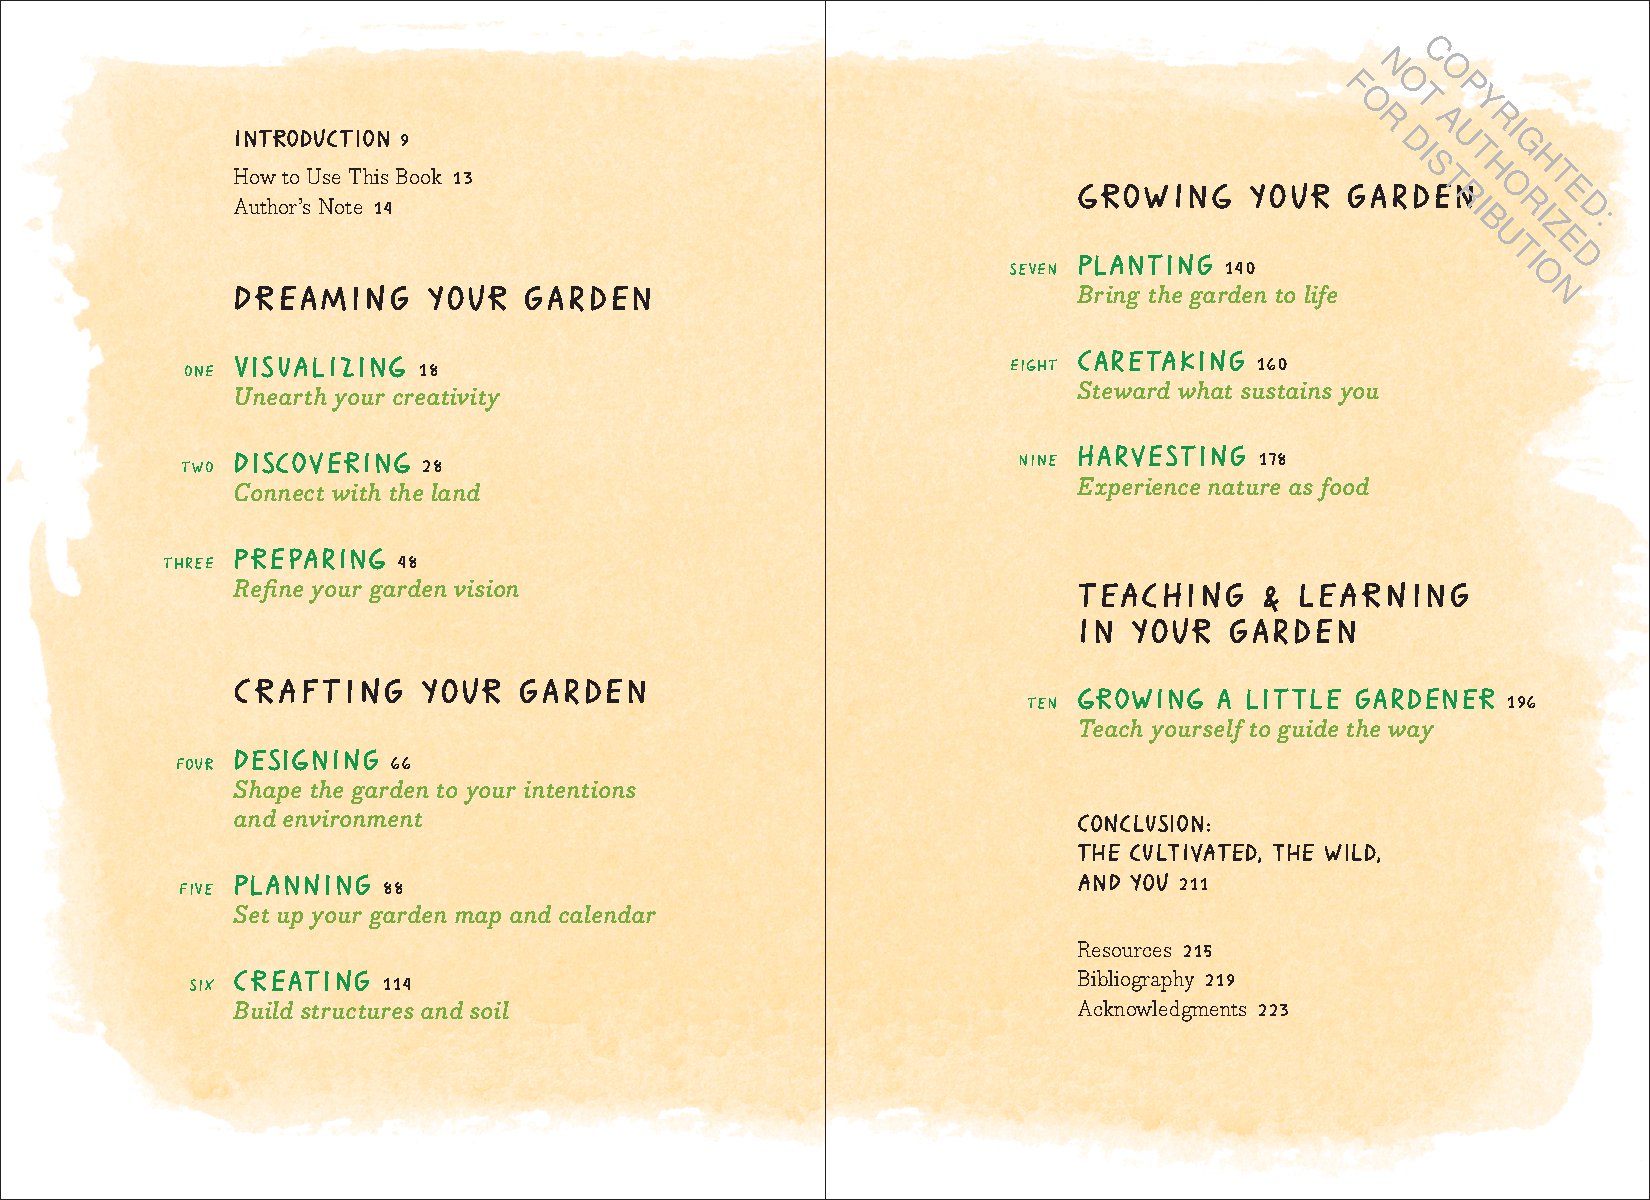 INTRODUCTION 9
How to Use This Book 13
Author's Note 14
DREAMING YOUR GARDEN
ONE VISUALIZING 18
Unearth your creativity
TWO DISCOVERING 28
Connect with the land
THREE PREPARING 48
Refine your garden vision
CRAFTING YOUR GARDEN
FOUR DESIGNING 66
Shape the garden to your intentions
and environment
FIVE PLANNING 88
Set up your garden map and calendar
SIX CREATING 114
Build structures and soil
COPYRIGHTED:
NOT AUTHORIZED
FOR DISTRIBUTION
GROWING YOUR GARDEN
SEVEN PLANTING 140
Bring the garden to life
EIGHT CARETAKING 160
Steward what sustains you
NINE HARVESTING 178
Experience nature as food
TEACHING & LEARNING
IN YOUR GARDEN
TEN GROWING A LITTLE GARDENER 196
Teach yourself to guide the way
CONCLUSION:
THE CULTIVATED, THE WILD,
AND YOU 211
Resources 215
Bibliography 219
Acknowledgments 223